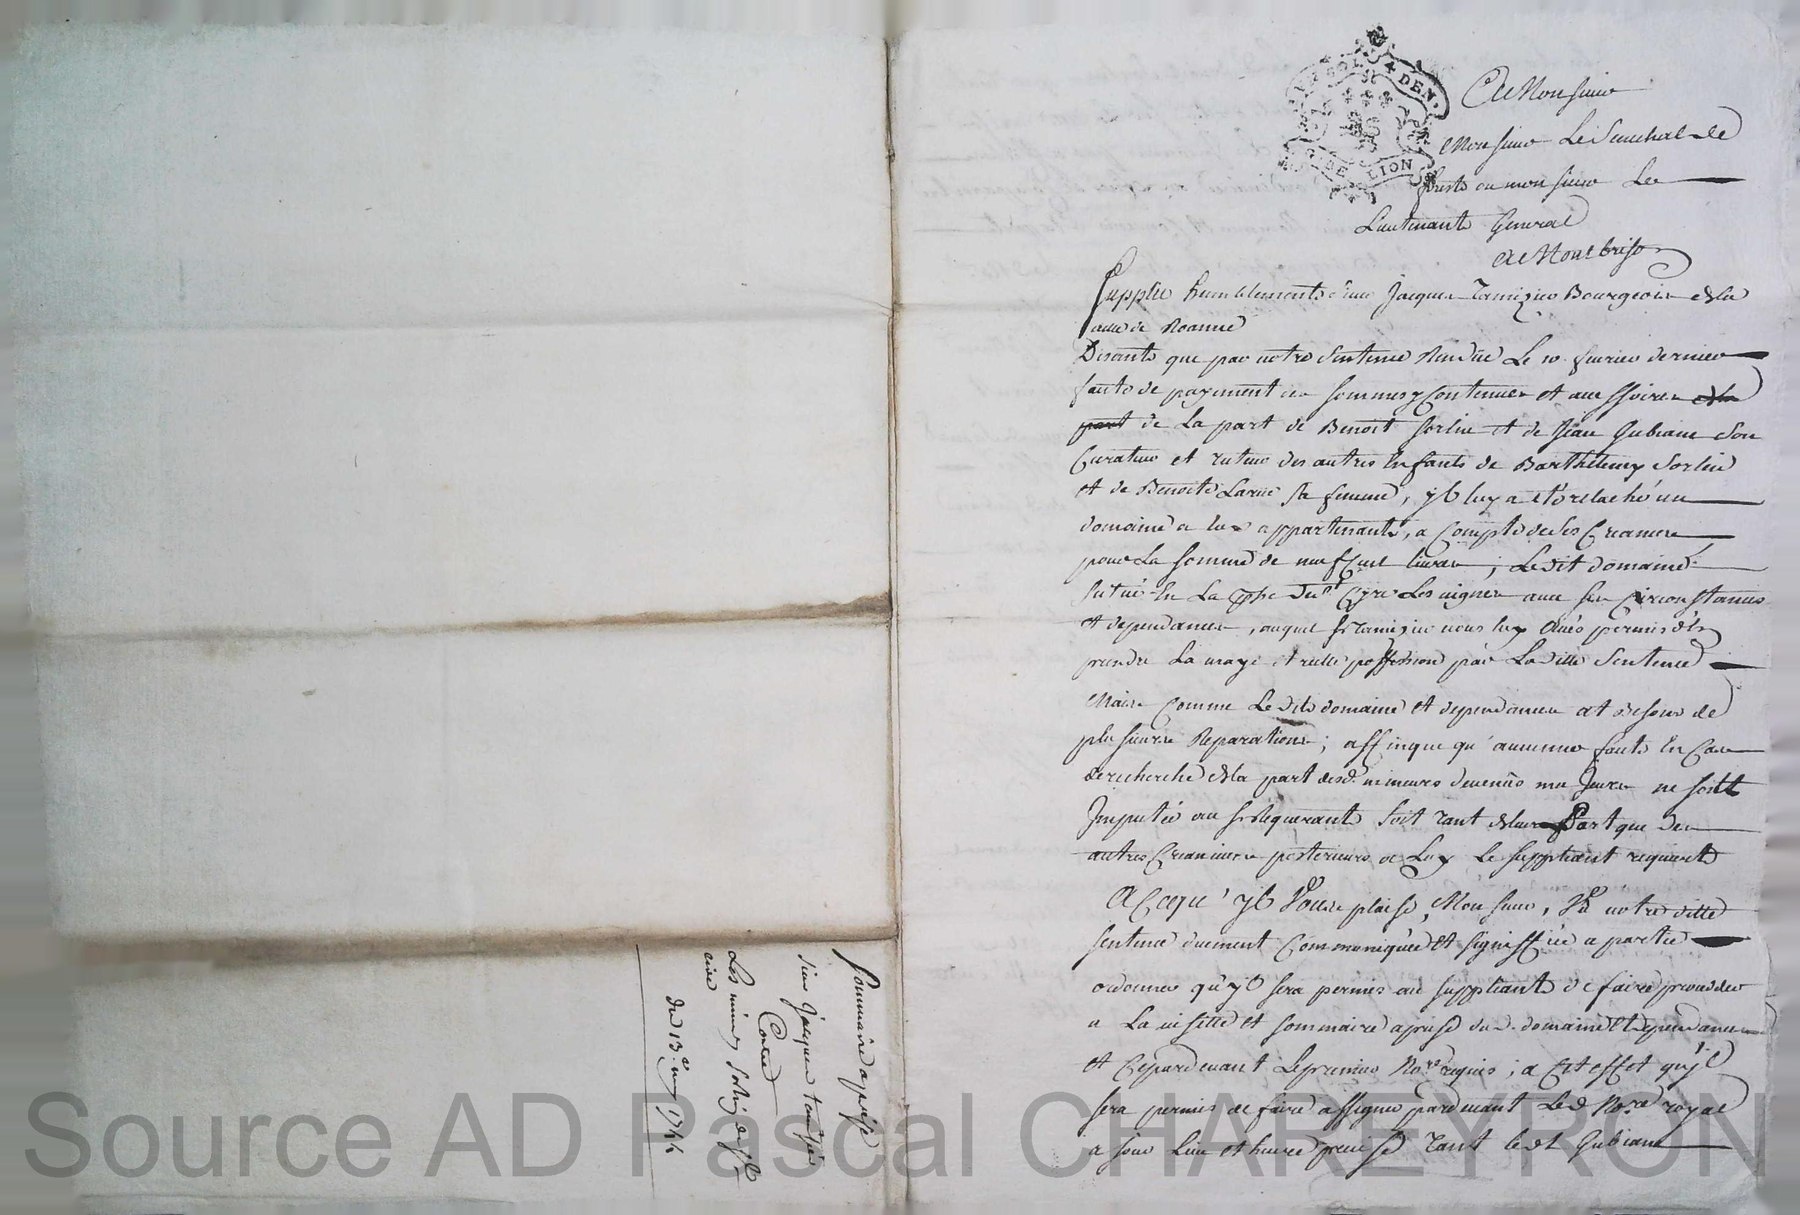 A Monsieur
Monsieur Le Senechal de
forests ou monsieur Le
Lieutenant General
A Montbrison
Supplie humblement sieur Jacques Tamisier Bourgeois de la
ville de Roanne
Disants que par votre Sentence Rendüe Le 10 fevrier dernier
faute de payement des sommes y Contenues et accessoires de la
part de La part de Benoit Sorlin et de Jean Gubian Son
Curateur et tuteur des autres Enfants de Barthelemy Sorlin
et de Benoite Larue sa femme, yl luy a eté relaché un
domaine a eux appartenant, a Compte de ses Creances
pour La somme de neuf Cent livres ; Ledit domaine
situé En La psse du St Cyre Les vignes avec ses Circonstances
et dependances, auquel sr Tamisier vous luy Aves permis d'En
prendre La vraye et reelle possession par Laditte Sentence
Mais Comme Ledit domaine et dependances at Besoins de
plusieurs Reparations ; affinque qu'aucune faute En Cas
de recherche de la part desd. mineurs devenus majeurs ne soitt
Imputée au sr Requerant soit tant de leur Part que des
autres Creanciers posterieurs a Luy Le suppliant requiert
A Ceque' yl Vous plaise, Monsieur, Vû votre ditte
sentence duement Communiquée et signiffiée a partie
ordonner qu'yl sera permis au suppliant de faire proceder
a La visitte et sommaire aprise dud. domaine et dependances
et Cepardevant Le premier Nore requis ; a Cet effet qu'yl
sera permis de faire assigner pardevant Led Nore royal
a jour Lieu et heure precise tant led st Gubian
Sommaire aprise
sieur Jacques tamisier
Contre
Les mineurs Sorlin de st
cire
du 13e may 1744
1 SOL 4 DEN.
G. DE LION
Source AD Pascal CHAREYRON